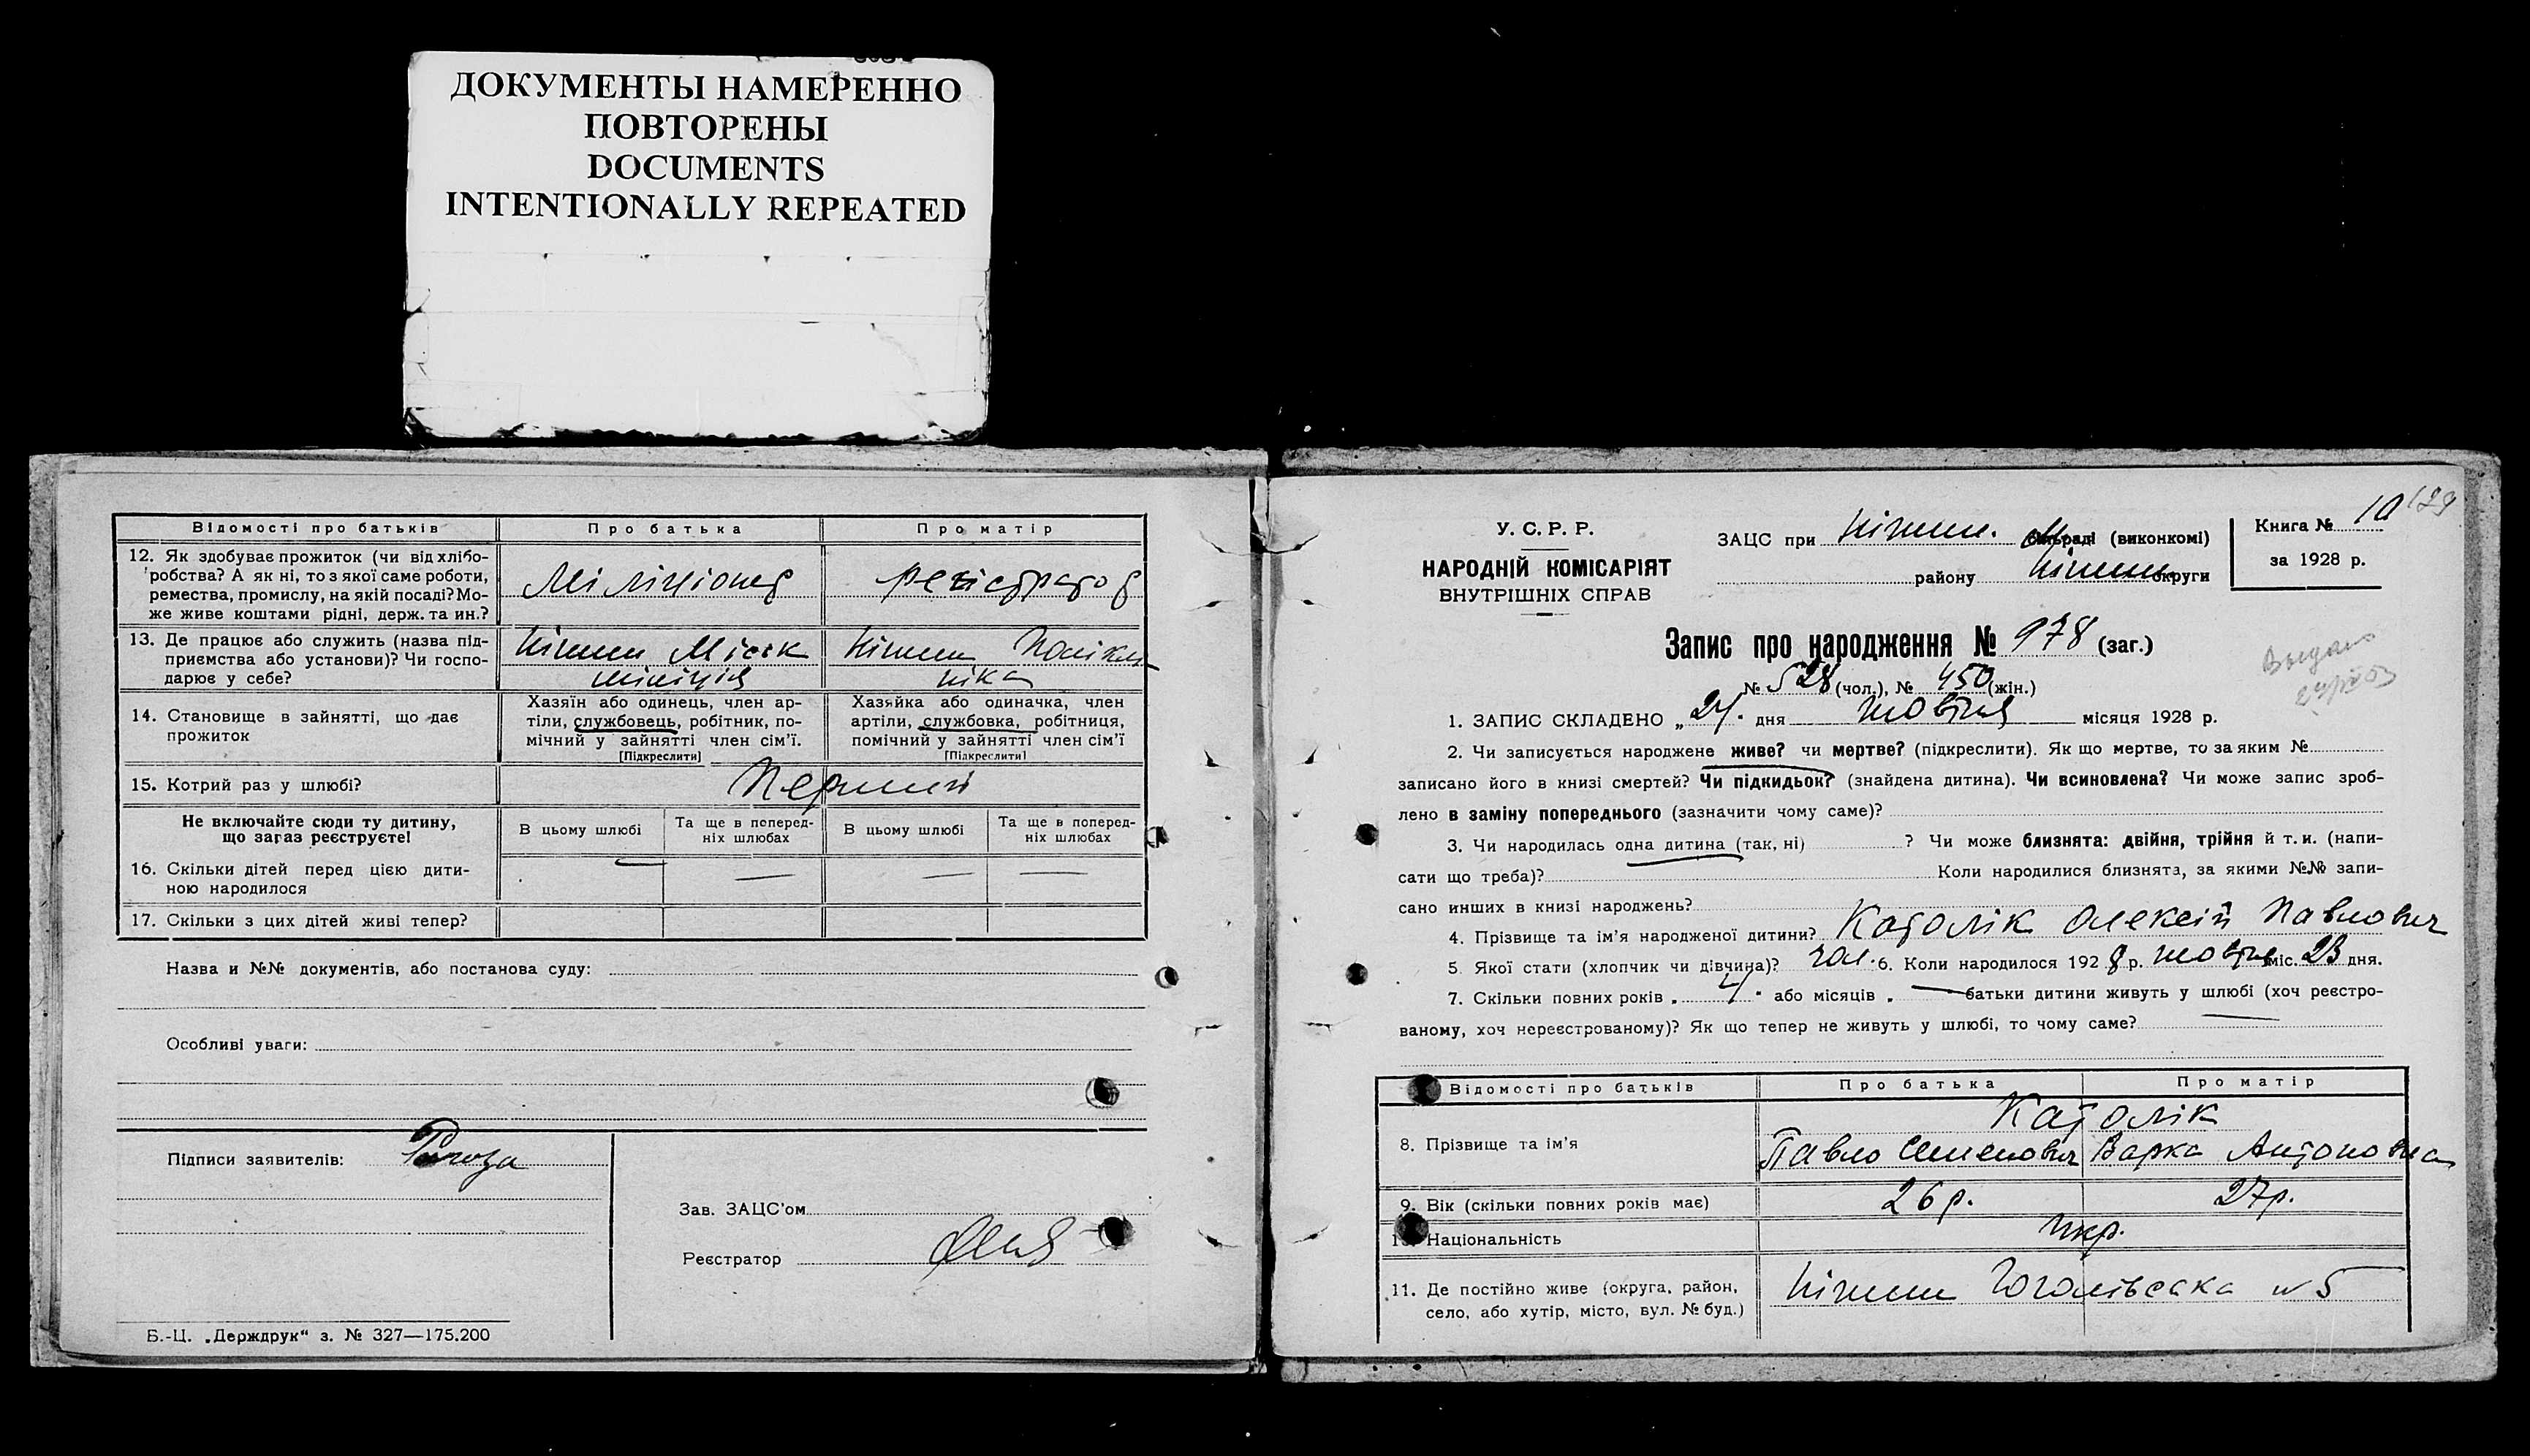 ДОКУМЕНТЫ НАМЕРЕННО
ПОВТОРЕНЫ
DOCUMENTS
INTENTIONALLY REPEATED
Відомості про батьків Про батька Про матір
12. Як здобуває прожиток (чи від хлібо-
робства? А як ні, то з якої саме роботи,
ремества, промислу, на якій посаді? Мо-
же живе коштами рідні, держ. та ин.?
Міліціонер регістратор
13. Де працює або служить (назва під-
приємства або установи)? Чи госпо-
дарює у себе?
Ніжин Міськ
міліція
Ніжин Поліклі
ніка
14. Становище в зайнятті, що дає
прожиток
Хазяїн або одинець, член ар-
тіли, службовець, робітник, по-
мічний у зайнятті член сім'ї.
[Підкреслити]
Хазяйка або одиначка, член
артіли, службовка, робітниця,
помічний у зайнятті член сім'ї
[Підкреслити]
15. Котрий раз у шлюбі? Перший
Не включайте сюди ту дитину,
що загаз реєструєте!
В цьому шлюбі Та ще в поперед-
ніх шлюбах В цьому шлюбі Та ще в поперед-
ніх шлюбах
16. Скільки дітей перед цією дити-
ною народилося — — — —
17. Скільки з цих дітей живі тепер?
Назва и №№ документів, або постанова суду:
Особливі уваги:
Підписи заявителів:
Зав. ЗАЦС'ом
Реєстратор
Б.-Ц. „Держдрук“ з. № 327—175.200
У. С. Р. Р.
НАРОДНІЙ КОМІСАРІЯТ
ВНУТРІШНІХ СПРАВ
ЗАЦС при Ніжин. (виконкомі)
району Ніжин округи
Книга № 10
за 1928 р.
129
Запис про народження № 978 (заг.)
№ 528 (чол.), № 450 (жін.)
Выдано
1. ЗАПИС СКЛАДЕНО „27. дня жовтня місяця 1928 р.
2. Чи записується народжене живе? чи мертве? (підкреслити). Як що мертве, то за яким №
записано його в книзі смертей? Чи підкидьок? (знайдена дитина). Чи всиновлена? Чи може запис зроб-
лено в заміну попереднього (зазначити чому саме)?
3. Чи народилась одна дитина (так, ні) ? Чи може близнята: двійня, трійня й т. и. (напи-
сати що треба)? Коли народилися близнята, за якими №№ запи-
сано инших в книзі народжень?
4. Прізвище та ім'я народженої дитини? Католік Олексій Павлович
5. Якої стати (хлопчик чи дівчина)? чол. 6. Коли народилося 1928 р. жовтня міс. 23 дня.
7. Скільки повних років „ 4 “ або місяців „ — батьки дитини живуть у шлюбі (хоч реєстро-
ваному, хоч нереєстрованому)? Як що тепер не живуть у шлюбі, то чому саме? —
Відомості про батьків Про батька Про матір
8. Прізвище та ім'я
Католік
Павло Семенович Варка Антоновна
9. Вік (скільки повних років має) 26 р. 27 р.
10. Національність Укр.
11. Де постійно живе (округа, район,
село, або хутір, місто, вул. № буд.)
Ніжин Гоголівська № 5